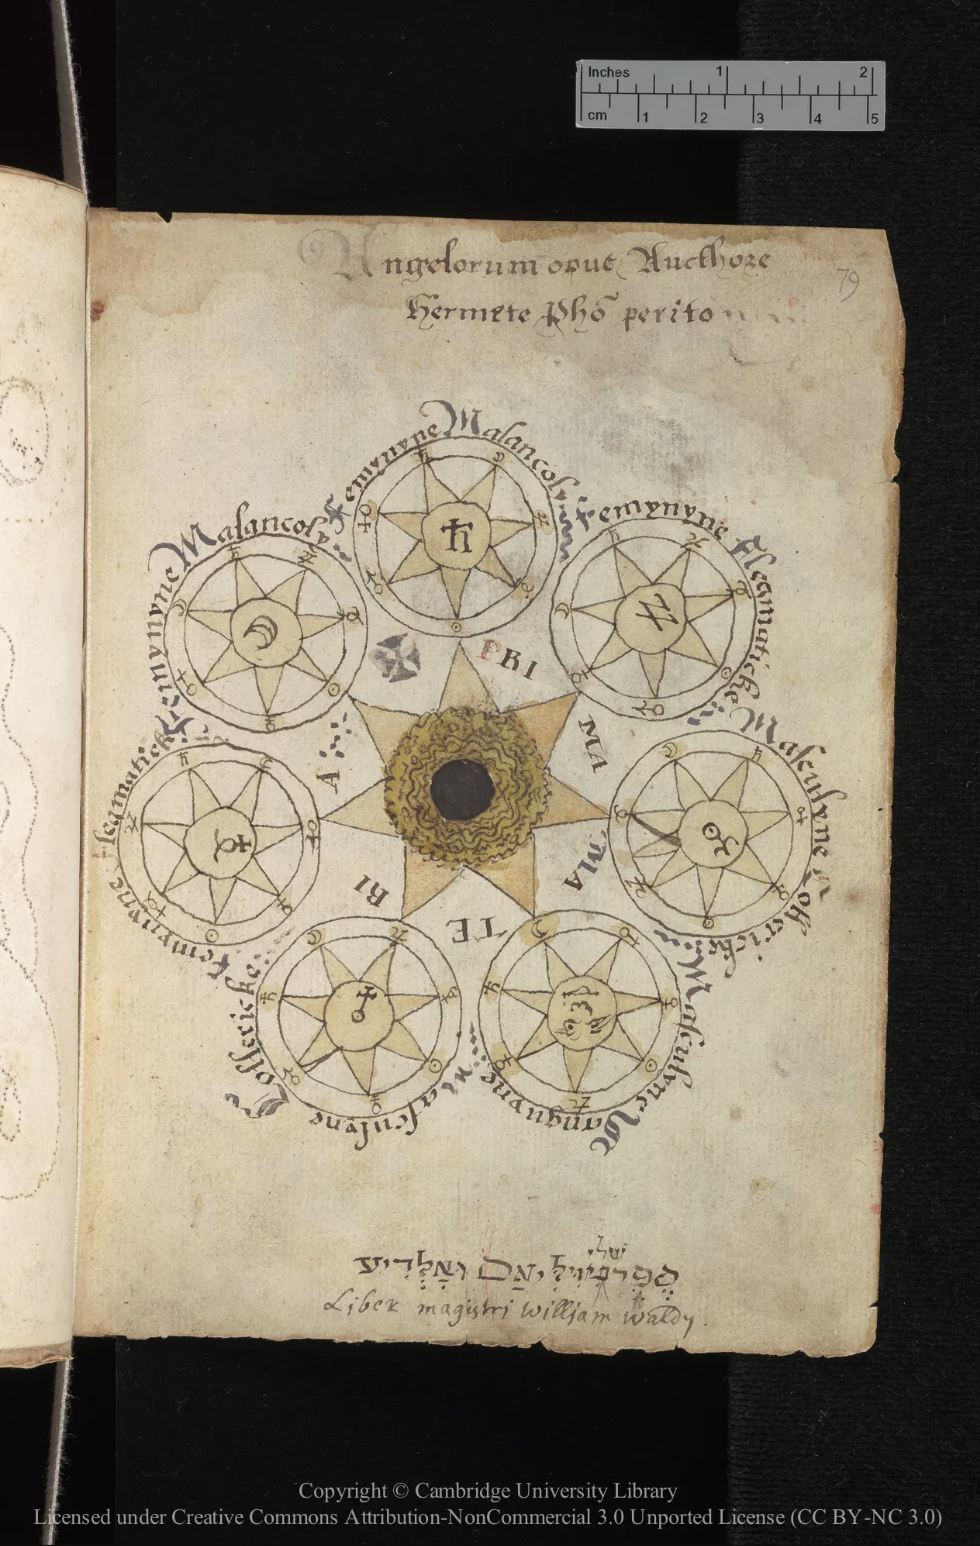 Inches 1 2
cm 1 2 3 4 5
Angelorum opus Aucthore
Hermete Phō perito
79
Femynyne Malancoly
Femynyne Fleamaticke
Masculyne Collericke
Masculyne Sanguyne
Masculyne Collericke
Femynyne Fleamaticke
Femynyne Malancoly
PRI
MA
MA
TE
RI
A
שלי
Liber magistri william waldy.
Copyright © Cambridge University Library
Licensed under Creative Commons Attribution-NonCommercial 3.0 Unported License (CC BY-NC 3.0)